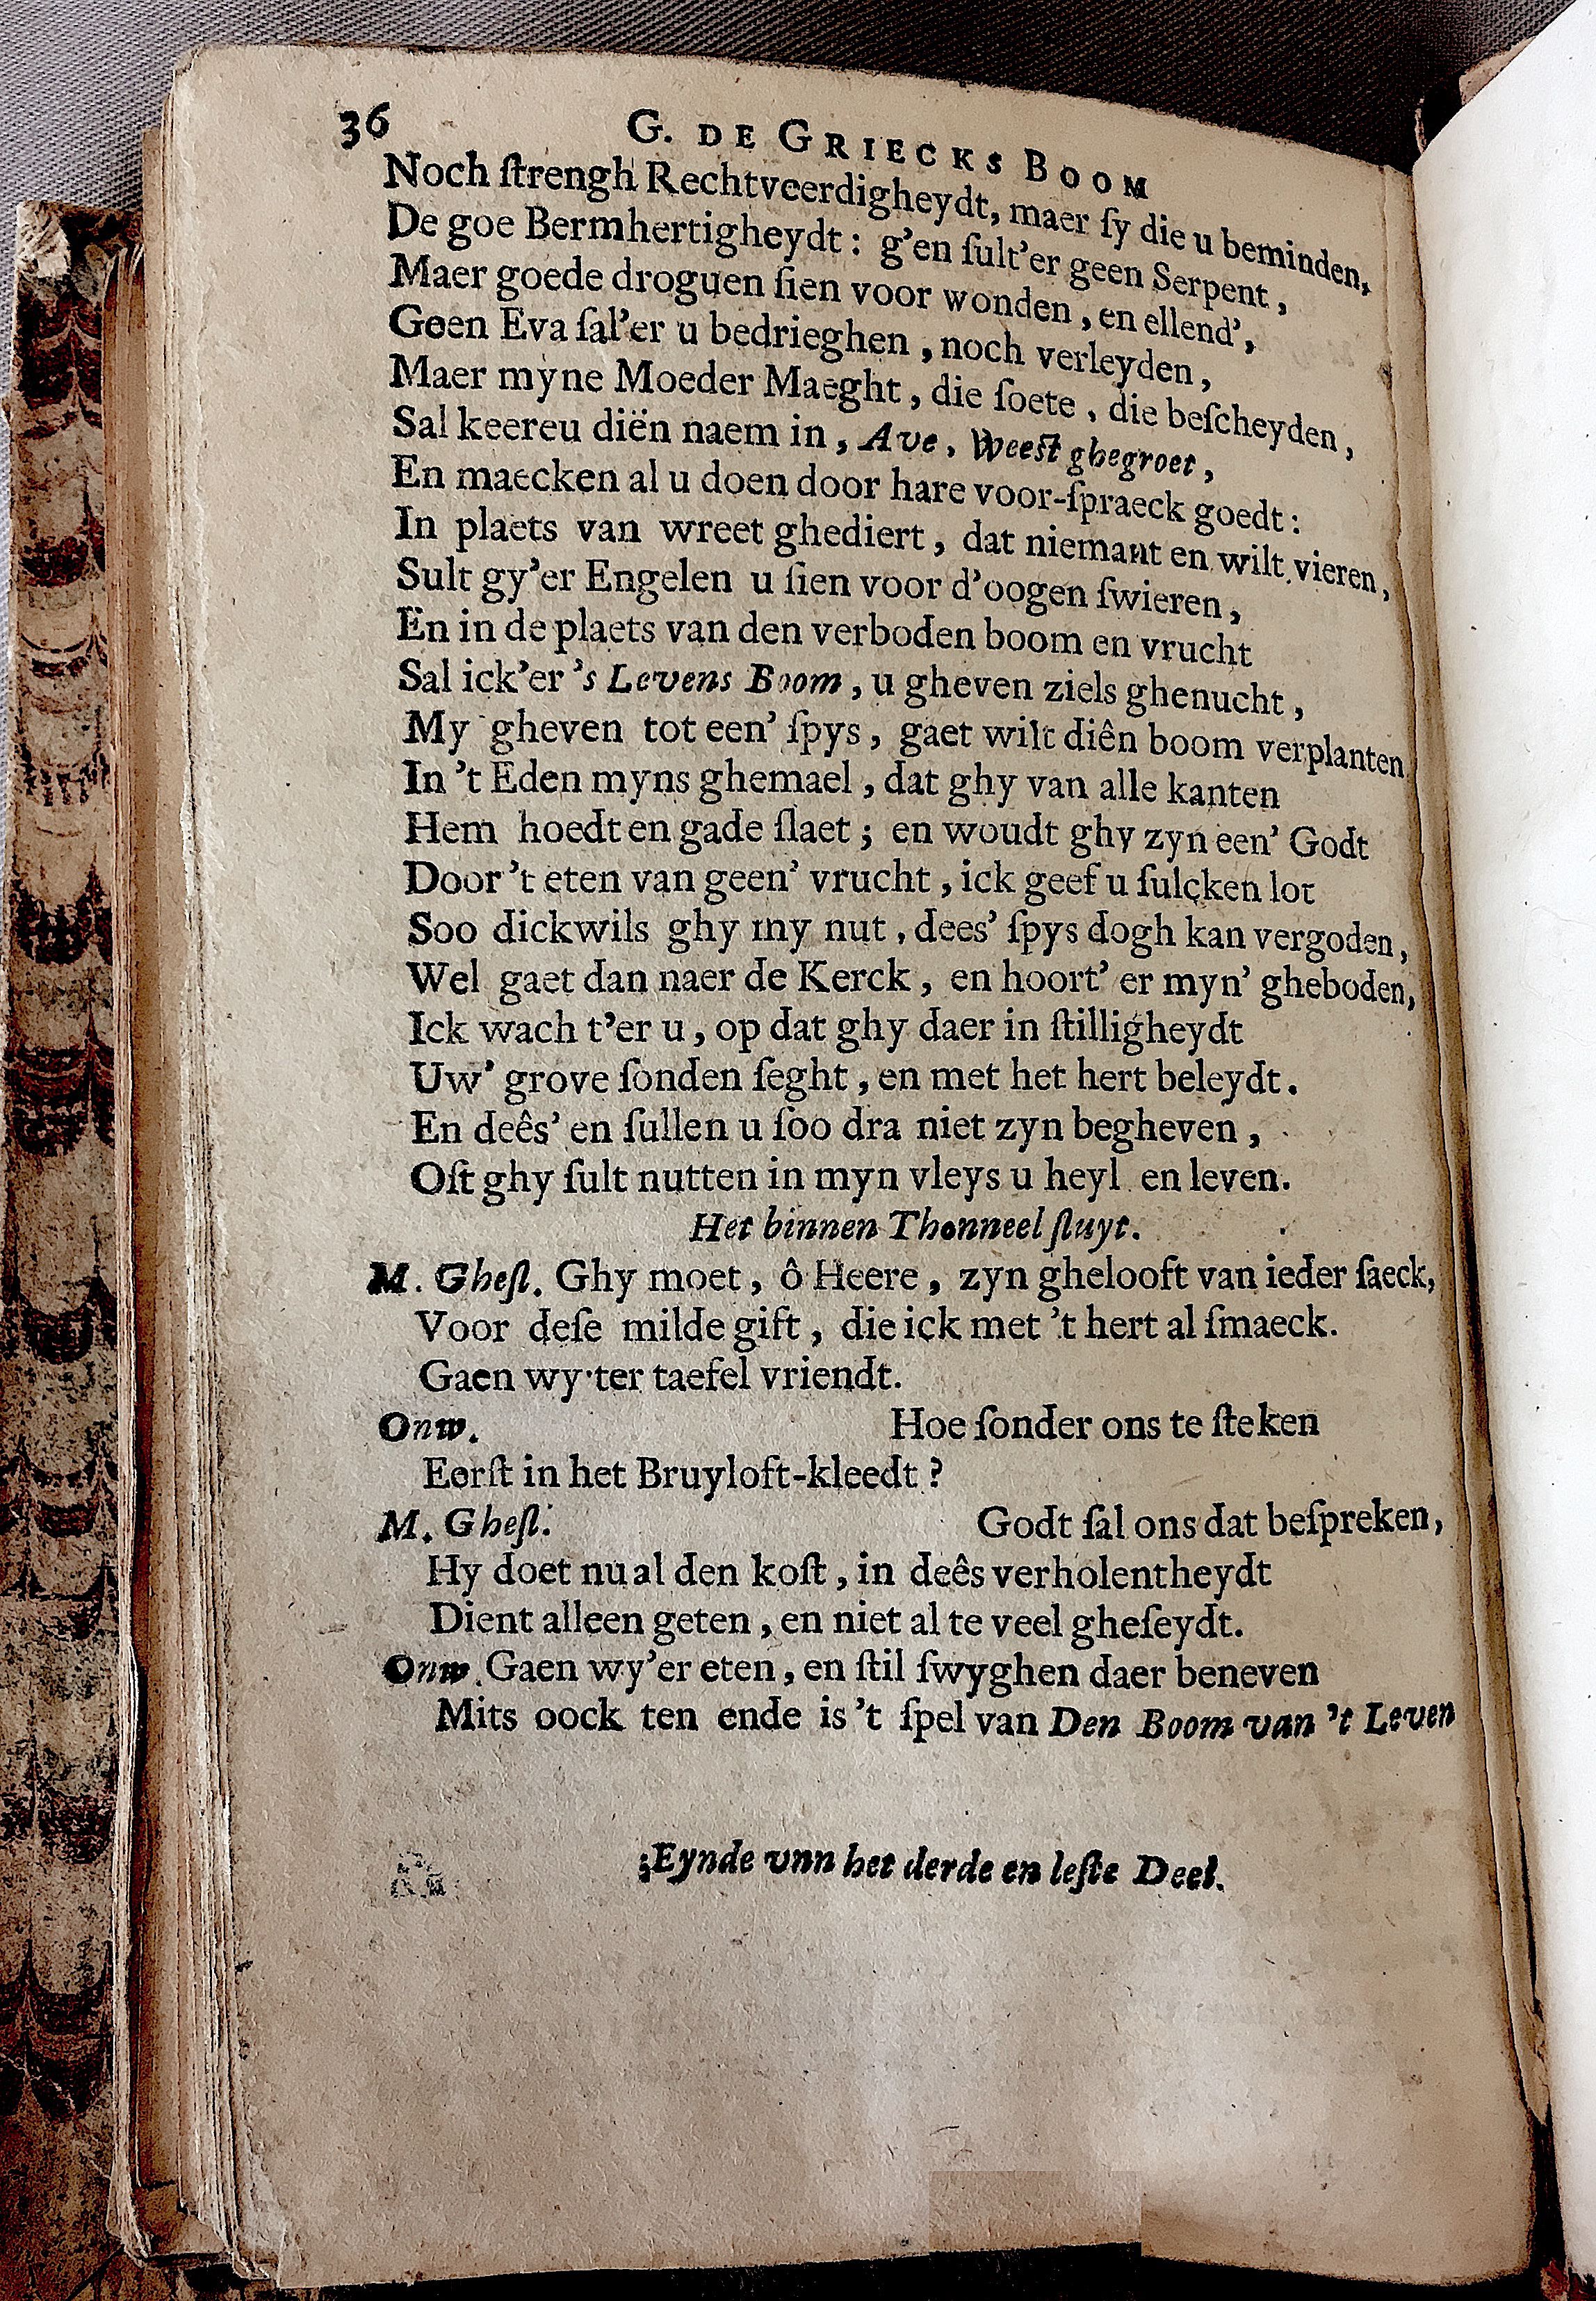 36 G. DE GRIECKS BOOM
Noch ſtrengh Rechtveerdigheydt, maer ſy die u beminden,
De goe Bermhertigheydt : g'en ſult'er geen Serpent ,
Maer goede droguen ſien voor wonden , en ellend' ,
Geen Eva ſal'er u bedrieghen , noch verleyden ,
Maer myne Moeder Maeght , die ſoete , die beſcheyden ,
Sal keereu diën naem in , Ave , Weeſt ghegroet ,
En maecken al u doen door hare voor-ſpraeck goedt :
In plaets van wreet ghediert , dat niemant en wilt vieren ,
Sult gy'er Engelen u ſien voor d'oogen ſwieren ,
En in de plaets van den verboden boom en vrucht
Sal ick'er 's Levens Boom , u gheven ziels ghenucht ,
My gheven tot een' ſpys , gaet wilt diên boom verplanten
In 't Eden myns ghemael , dat ghy van alle kanten
Hem hoedt en gade ſlaet ; en woudt ghy zyn een' Godt
Door 't eten van geen' vrucht , ick geef u ſulcken lot
Soo dickwils ghy my nut , dees' ſpys dogh kan vergoden ,
Wel gaet dan naer de Kerck , en hoort' er myn' gheboden,
Ick wach t'er u , op dat ghy daer in ſtilligheydt
Uw' grove ſonden ſeght , en met het hert beleydt .
En deês' en ſullen u ſoo dra niet zyn begheven ,
Oſt ghy ſult nutten in myn vleys u heyl en leven.
Het binnen Thonneel ſluyt.
M. Gheſl. Ghy moet , ô Heere , zyn ghelooft van ieder ſaeck,
Voor deſe milde gift , die ick met 't hert al ſmaeck.
Gaen wy ter taefel vriendt.
Onw. Hoe ſonder ons te ſteken
Eerſt in het Bruyloft-kleedt ?
M. Gheſl. Godt ſal ons dat beſpreken,
Hy doet nu al den koſt , in deês verholentheydt
Dient alleen geten , en niet al te veel gheſeydt.
Onw. Gaen wy'er eten , en ſtil ſwyghen daer beneven
Mits oock ten ende is 't ſpel van Den Boom van 't Leven
Eynde vnn het derde en leſte Deel.